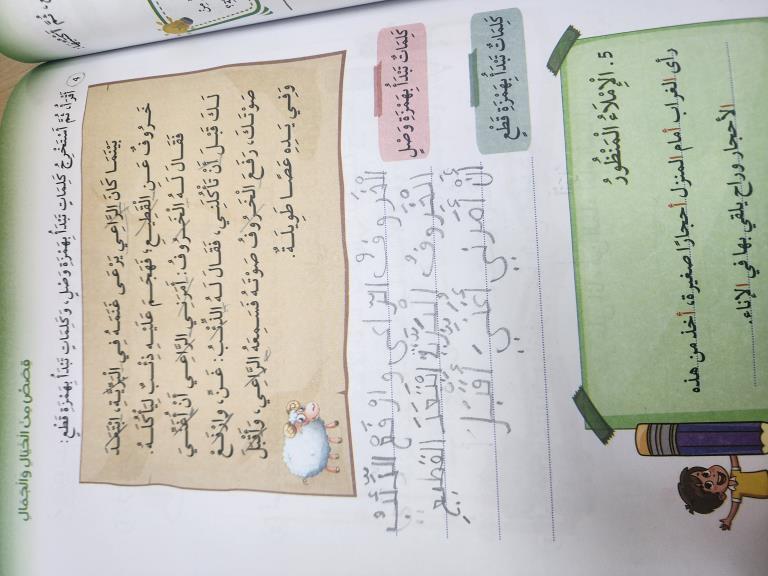 قصص من الخيال والجمال
٩ أَقْرَأُ ثُمَّ أَسْتَخْرِجُ كَلِمَاتٍ تَبْدَأُ بِهَمْزَةِ وَصْلٍ، وَكَلِمَاتٍ تَبْدَأُ بِهَمْزَةِ قَطْعٍ:
بَيْنَمَا كَانَ الرَّاعِي يَرْعَى غَنَمَهُ فِي الْبَرِّيَّةِ، ابْتَعَدَ
خَرُوفٌ عَنِ الْقَطِيعِ؛ فَهَجَمَ عَلَيْهِ ذِئْبٌ لِيَأْكُلَهُ.
فَقَالَ لَهُ الْخَرُوفُ: أَمَرَنِي الرَّاعِي أَنْ أُغَنِّيَ
لَكَ قَبْلَ أَنْ تَأْكُلَنِي، فَقَالَ لَهُ الذِّئْبُ: غَنِّ، وَارْفَعْ
صَوْتَكَ، رَفَعَ الْخَرُوفُ صَوْتَهُ فَسَمِعَهُ الرَّاعِي، وَأَقْبَلَ
وَفِي يَدِهِ عَصًا طَوِيلَةٌ.
كَلِمَاتٌ تَبْدَأُ بِهَمْزَةِ وَصْلٍ
الْخَروفُ الرّاعي وارْفَعْ الذِّئبُ
الخَروفُ البريّة ابْتَعَدَ القطيعِ
كَلِمَاتٌ تَبْدَأُ بِهَمْزَةِ قَطْعٍ
أَنْ أَمَرَني أُغني أَقْبَلَ
5. الْإِمْلَاءُ الْمَنْظُورُ
رأى الغراب أمام المنزل أحجارًا صغيرة، أخذ من هذه
الأحجار وراح يلقي بها في الإناء.